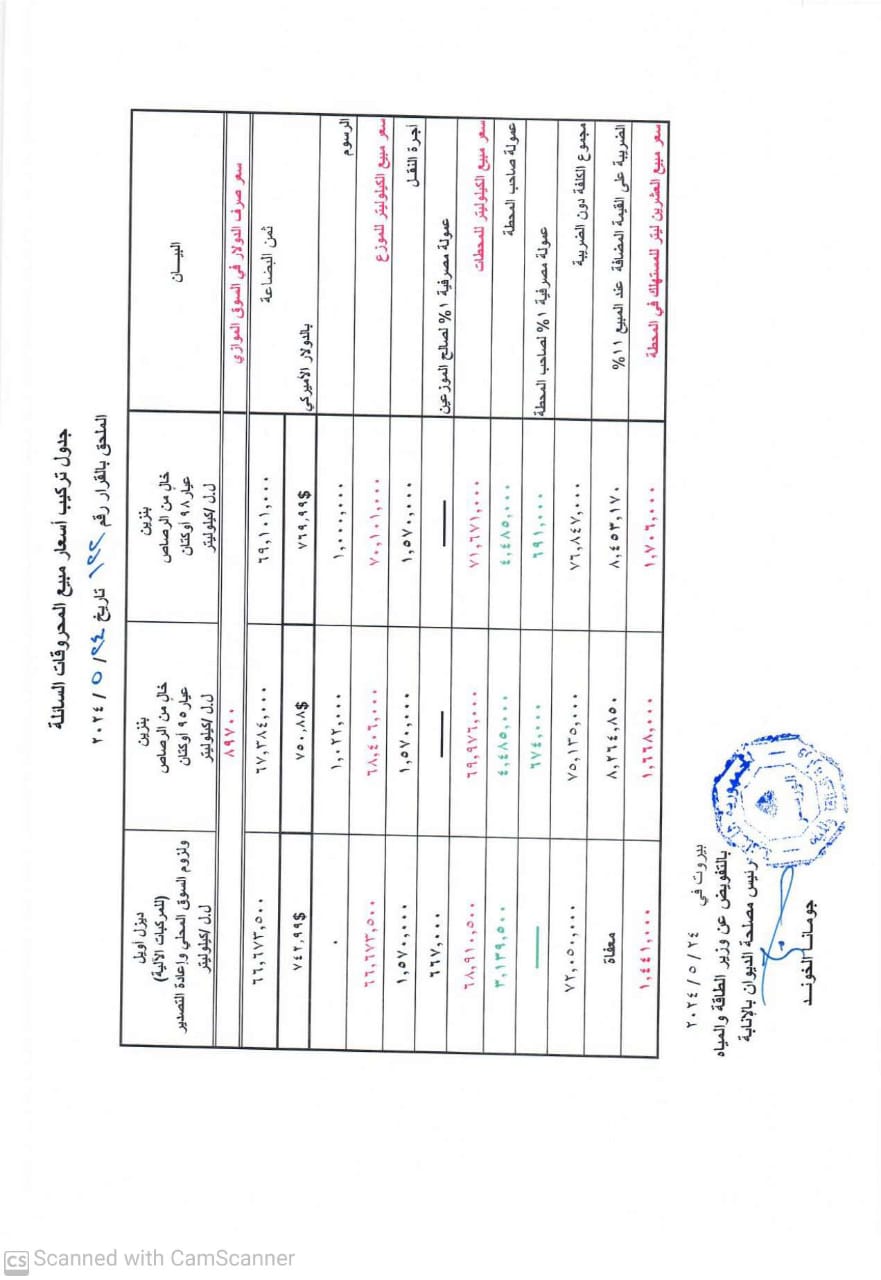 جدول تركيب أسعار مبيع المحروقات السائلة
الملحق بالقرار رقم ١٢٢ تاريخ ٢٤ / ٥ / ٢٠٢٤
البيـــان
بنزين
خالٍ من الرصاص
عيار ٩٨ أوكتان
ل.ل/كيلوليتر
بنزين
خالٍ من الرصاص
عيار ٩٥ أوكتان
ل.ل/كيلوليتر
ديزل أويل
(للمركبات الآلية)
ولزوم السوق المحلي وإعادة التصدير
ل.ل/كيلوليتر
سعر صرف الدولار في السوق الموازي ٨٩٧٠٠
ثمن البضاعة ٦٩,١٠١,٠٠٠ ٦٧,٣٨٤,٠٠٠ ٦٦,٦٧٣,٥٠٠
بالدولار الأميركي ٧٦٩,٩٩$ ٧٥٠,٨٨$ ٧٤٢,٩٩$
الرسوم ١,٠٠٠,٠٠٠ ١,٠٢٢,٠٠٠ ٠
سعر مبيع الكيلوليتر للموزع ٧٠,١٠١,٠٠٠ ٦٨,٤٠٦,٠٠٠ ٦٦,٦٧٣,٥٠٠
أجرة النقل ١,٥٧٠,٠٠٠ ١,٥٧٠,٠٠٠ ١,٥٧٠,٠٠٠
عمولة مصرفية ١% لصالح الموزعين — — ٦٦٧,٠٠٠
سعر مبيع الكيلوليتر للمحطات ٧١,٦٧١,٠٠٠ ٦٩,٩٧٦,٠٠٠ ٦٨,٩١٠,٥٠٠
عمولة صاحب المحطة ٤,٤٨٥,٠٠٠ ٤,٤٨٥,٠٠٠ ٣,١٣٩,٥٠٠
عمولة مصرفية ١% لصاحب المحطة ٦٩١,٠٠٠ ٦٧٤,٠٠٠ —
مجموع الكلفة دون الضريبة ٧٦,٨٤٧,٠٠٠ ٧٥,١٣٥,٠٠٠ ٧٢,٠٥٠,٠٠٠
الضريبة على القيمة المضافة عند المبيع ١١% ٨,٤٥٣,١٧٠ ٨,٢٦٤,٨٥٠ معفاة
سعر مبيع العشرين ليتر للمستهلك في المحطة ١,٧٠٦,٠٠٠ ١,٦٦٨,٠٠٠ ١,٤٤١,٠٠٠
بيروت في ٢٤ / ٥ / ٢٠٢٤
بالتفويض عن وزير الطاقة والمياه
رئيس مصلحة الديوان بالإنابة
جومانـا الخونـد
CS Scanned with CamScanner